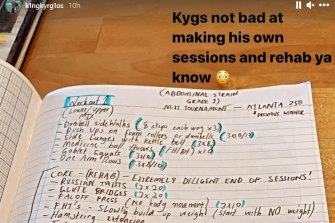 k1ngkyrg1os 10h
Kygs not bad at
making his own
sessions and rehab ya
know 😳
(ABDOMINAL STRAIN
GRADE 1)
Workout 1
(Lower/Upper
Mix)
NEXT TOURNAMENT — ATLANTA 250
* PREVIOUS WINNER
- Dumbell sidewalks (8 steps each way x3)
- Push ups on foam rollers or dumbells (3x10)
- Side Lunges with kettle bell
- Medicine ball throws (FH/BH) x10
- Goblet Squats (3x10)
- One Arm Rows (3x8)
CORE - (REHAB) - EXTREMELY DILIGENT END OF SESSIONS!
- RUSSIAN TWISTS (3x20)
- GLUTE BRIDGES (3x20)
- PALOFF PRESS (no body movement) (3x10)
- FHTS - Slowly build up weight (start with NO weight)
- Hamstring extension